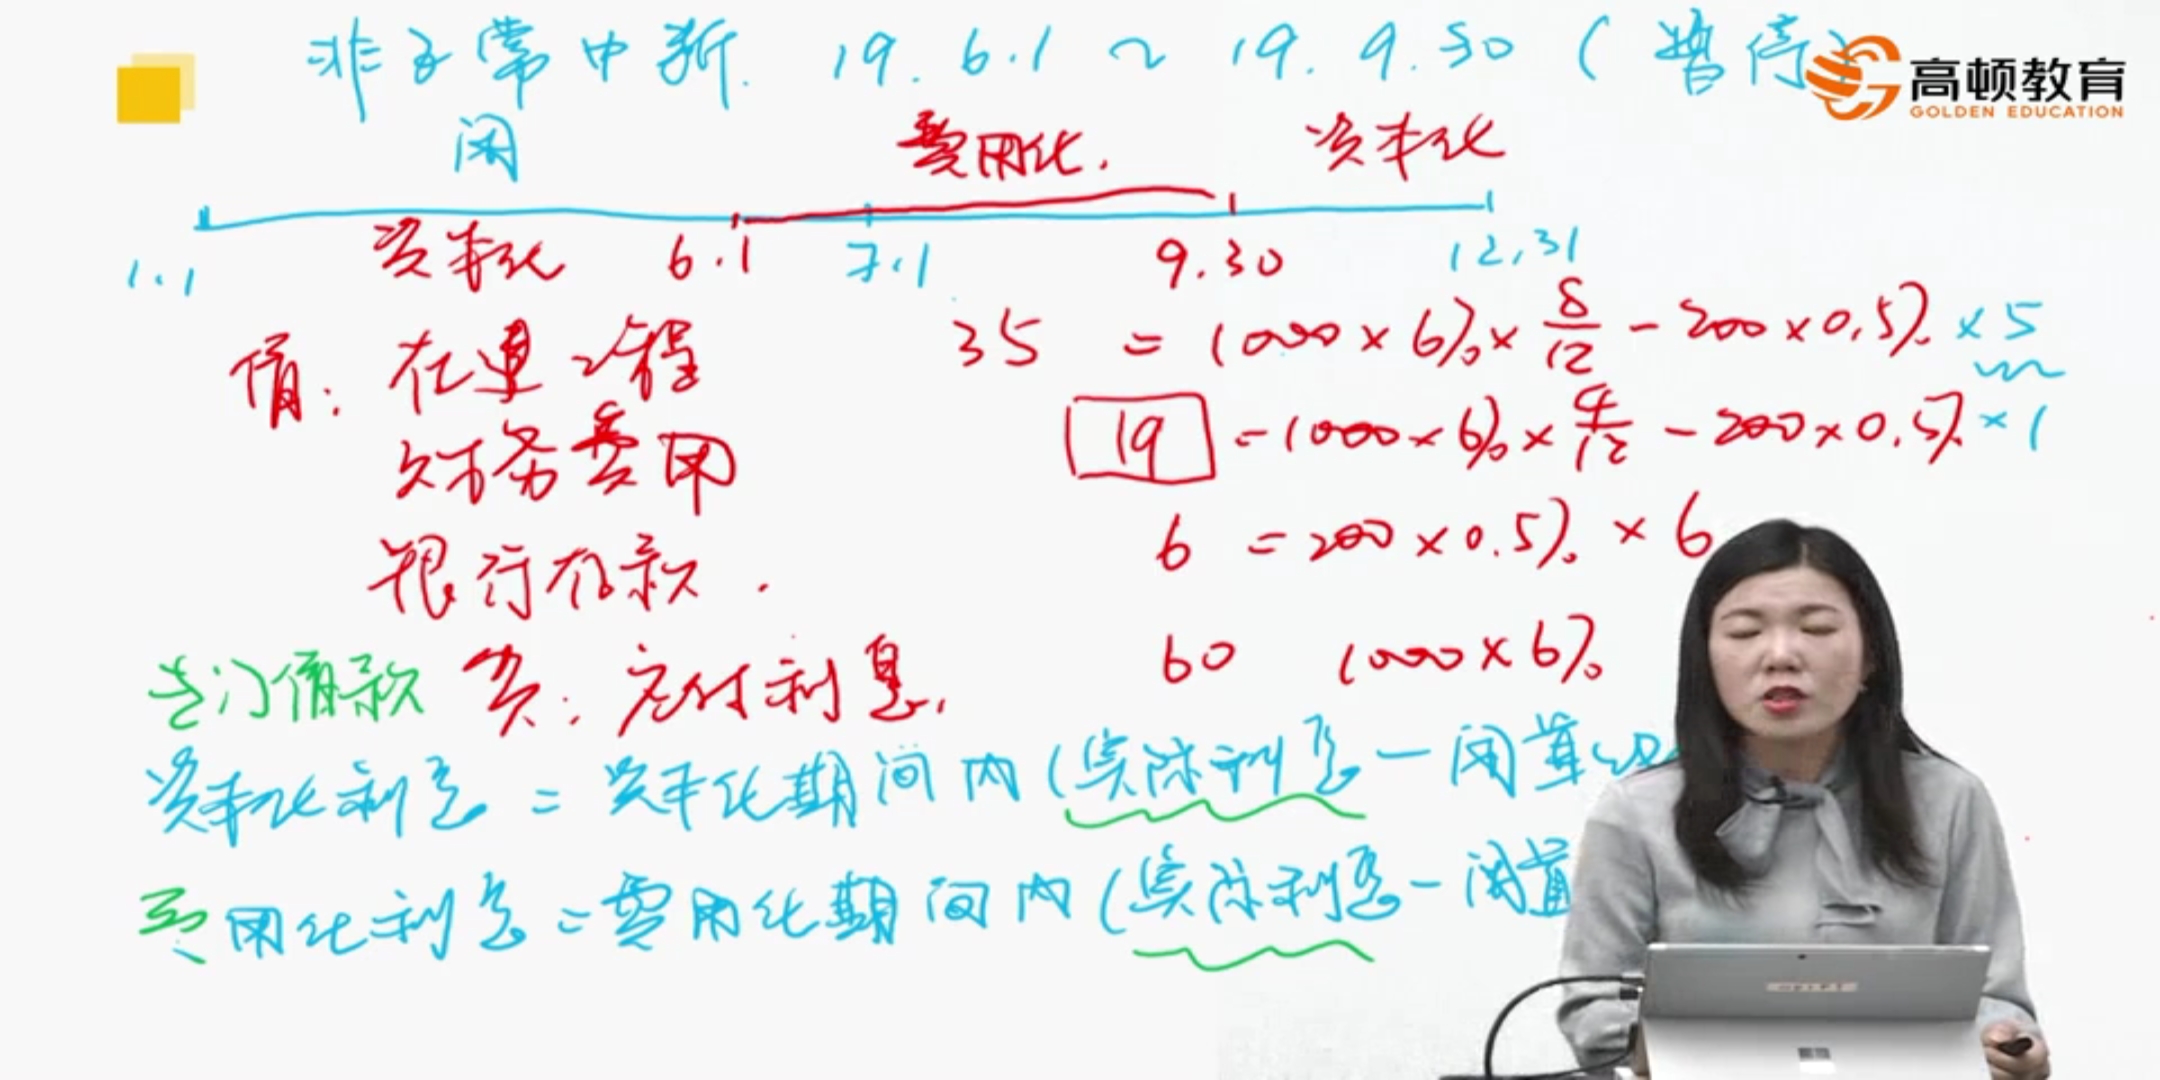 非正常中断. 19.6.1～19.9.30(暂停)
高顿教育
GOLDEN EDUCATION
闲 费用化. 资本化
资本化
1.1 6.1 7.1 9.30 12.31
借: 在建工程 35 = 1000×6%×8/12 - 200×0.5%×5
财务费用 19 = 1000×6%×4/12 - 200×0.5%×1
银行存款. 6 = 200×0.5%×6
专门借款 贷: 应付利息. 60 1000×6%
资本化利息 = 资本化期间内(实际利息-闲置
费用化利息 = 费用化期间内(实际利息-闲置